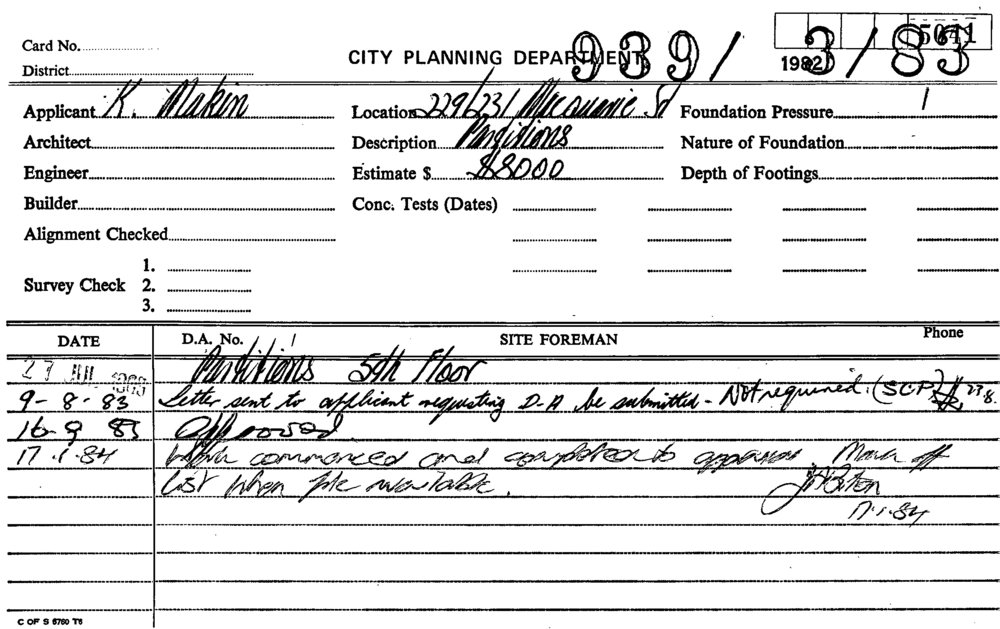 Card No.
CITY PLANNING DEPARTMENT
939/3/83
5041
1982
District
Applicant K. Makin
Location 229/231 Macquarie St
Foundation Pressure
Architect
Description Partitions
Nature of Foundation
Engineer
Estimate $ $8000
Depth of Footings
Builder
Conc. Tests (Dates)
Alignment Checked
1.
Survey Check 2.
3.
DATE D.A. No. SITE FOREMAN Phone
27 JUL Partitions 5th Floor
9-8-83 Letter sent to applicant requesting D-A be submitted - Not required. (SCP) 23.8.
16-9 83 Approved.
17.1.84 commenced and completed to approval. Mark off
list when file available.
17.1.84
C OF S 6760 T6